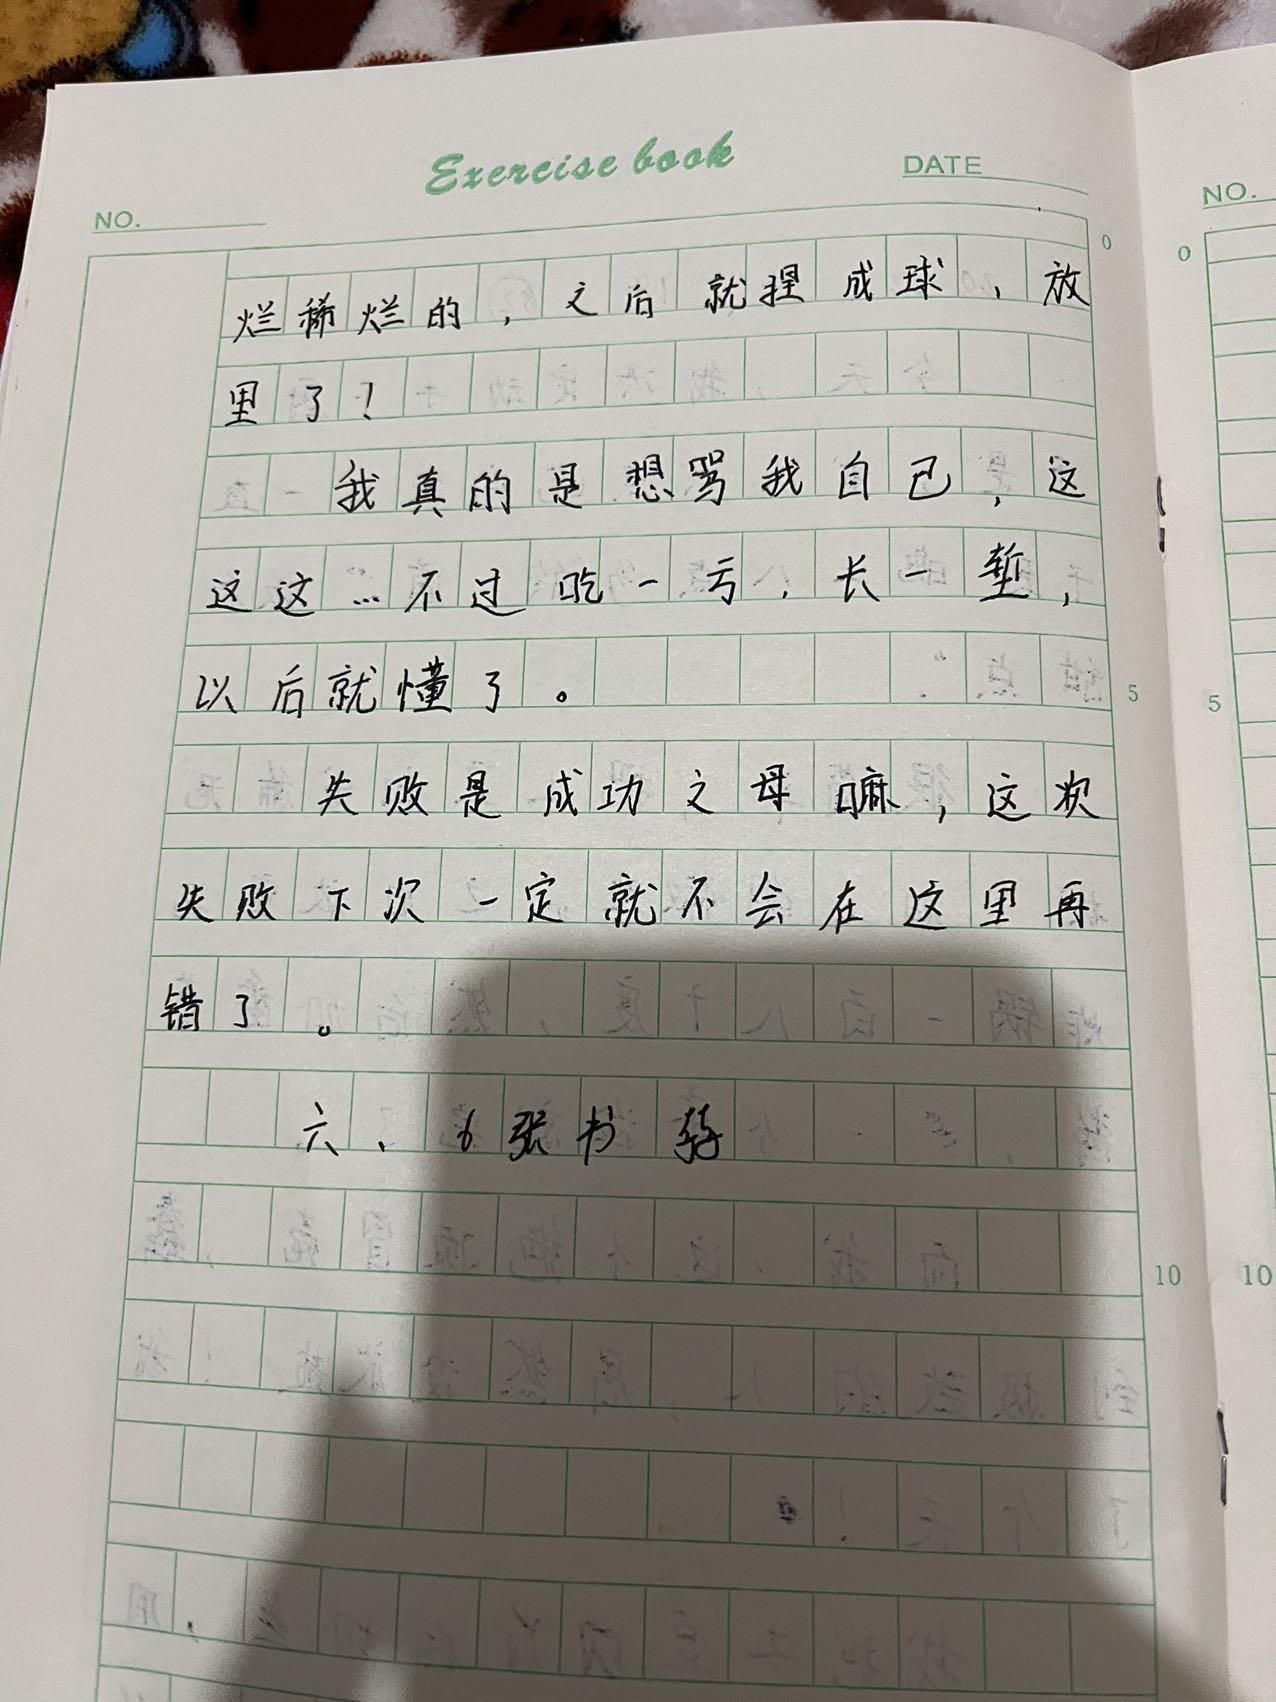 Exercise book
NO.
DATE
NO.
烂稀烂的，之后就捏成球，放
里了！
我真的是想骂我自己，这
这这…不过吃一亏，长一堑，
以后就懂了。
失败是成功之母嘛，这次
失败下次一定就不会在这里再
错了。
六、6张书
0
0
5
5
10
10